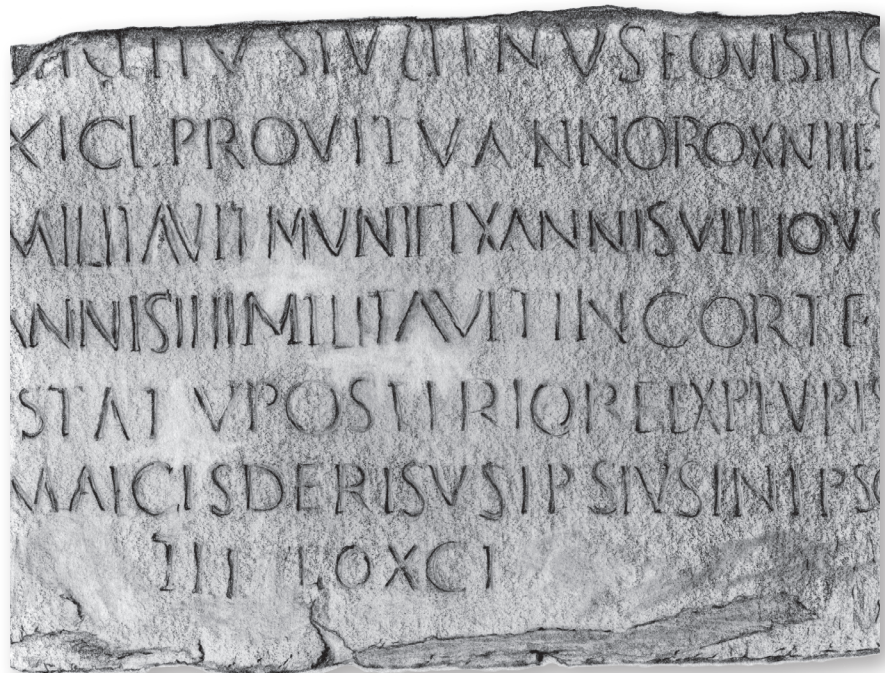 SIVLIINVS EQVISIII
XICLPROVITVANNOROXNIIIE
MILITAVIT MVNIFIXANNISVIIIIOVS
ANNISIIIIMILITAVITINCORTE
STATVPOSTIRIOREEIXPLVPIS
MAICISDERISVSIPSIVSINIPSO
III LOXCI